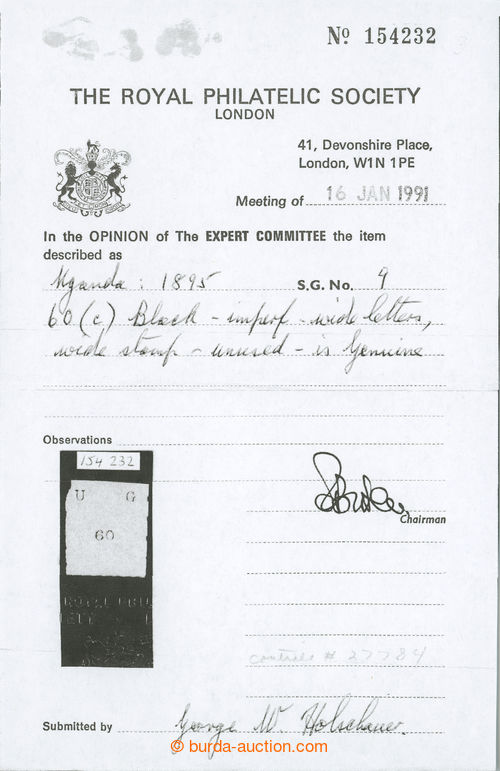 Nº 154232
THE ROYAL PHILATELIC SOCIETY
LONDON
41, Devonshire Place,
London, W1N 1PE
Meeting of 16 JAN 1991
In the OPINION of The EXPERT COMMITTEE the item
described as
Uganda : 1895 S.G. No. 9
60 (c) Black - imperf - wide letters,
wide stamp - unused - is Genuine
Observations
154 232
U G
60
ROYAL PHIL
IETY
Chairman
# 27784
Submitted by George W. Holschauer
© burda-auction.com